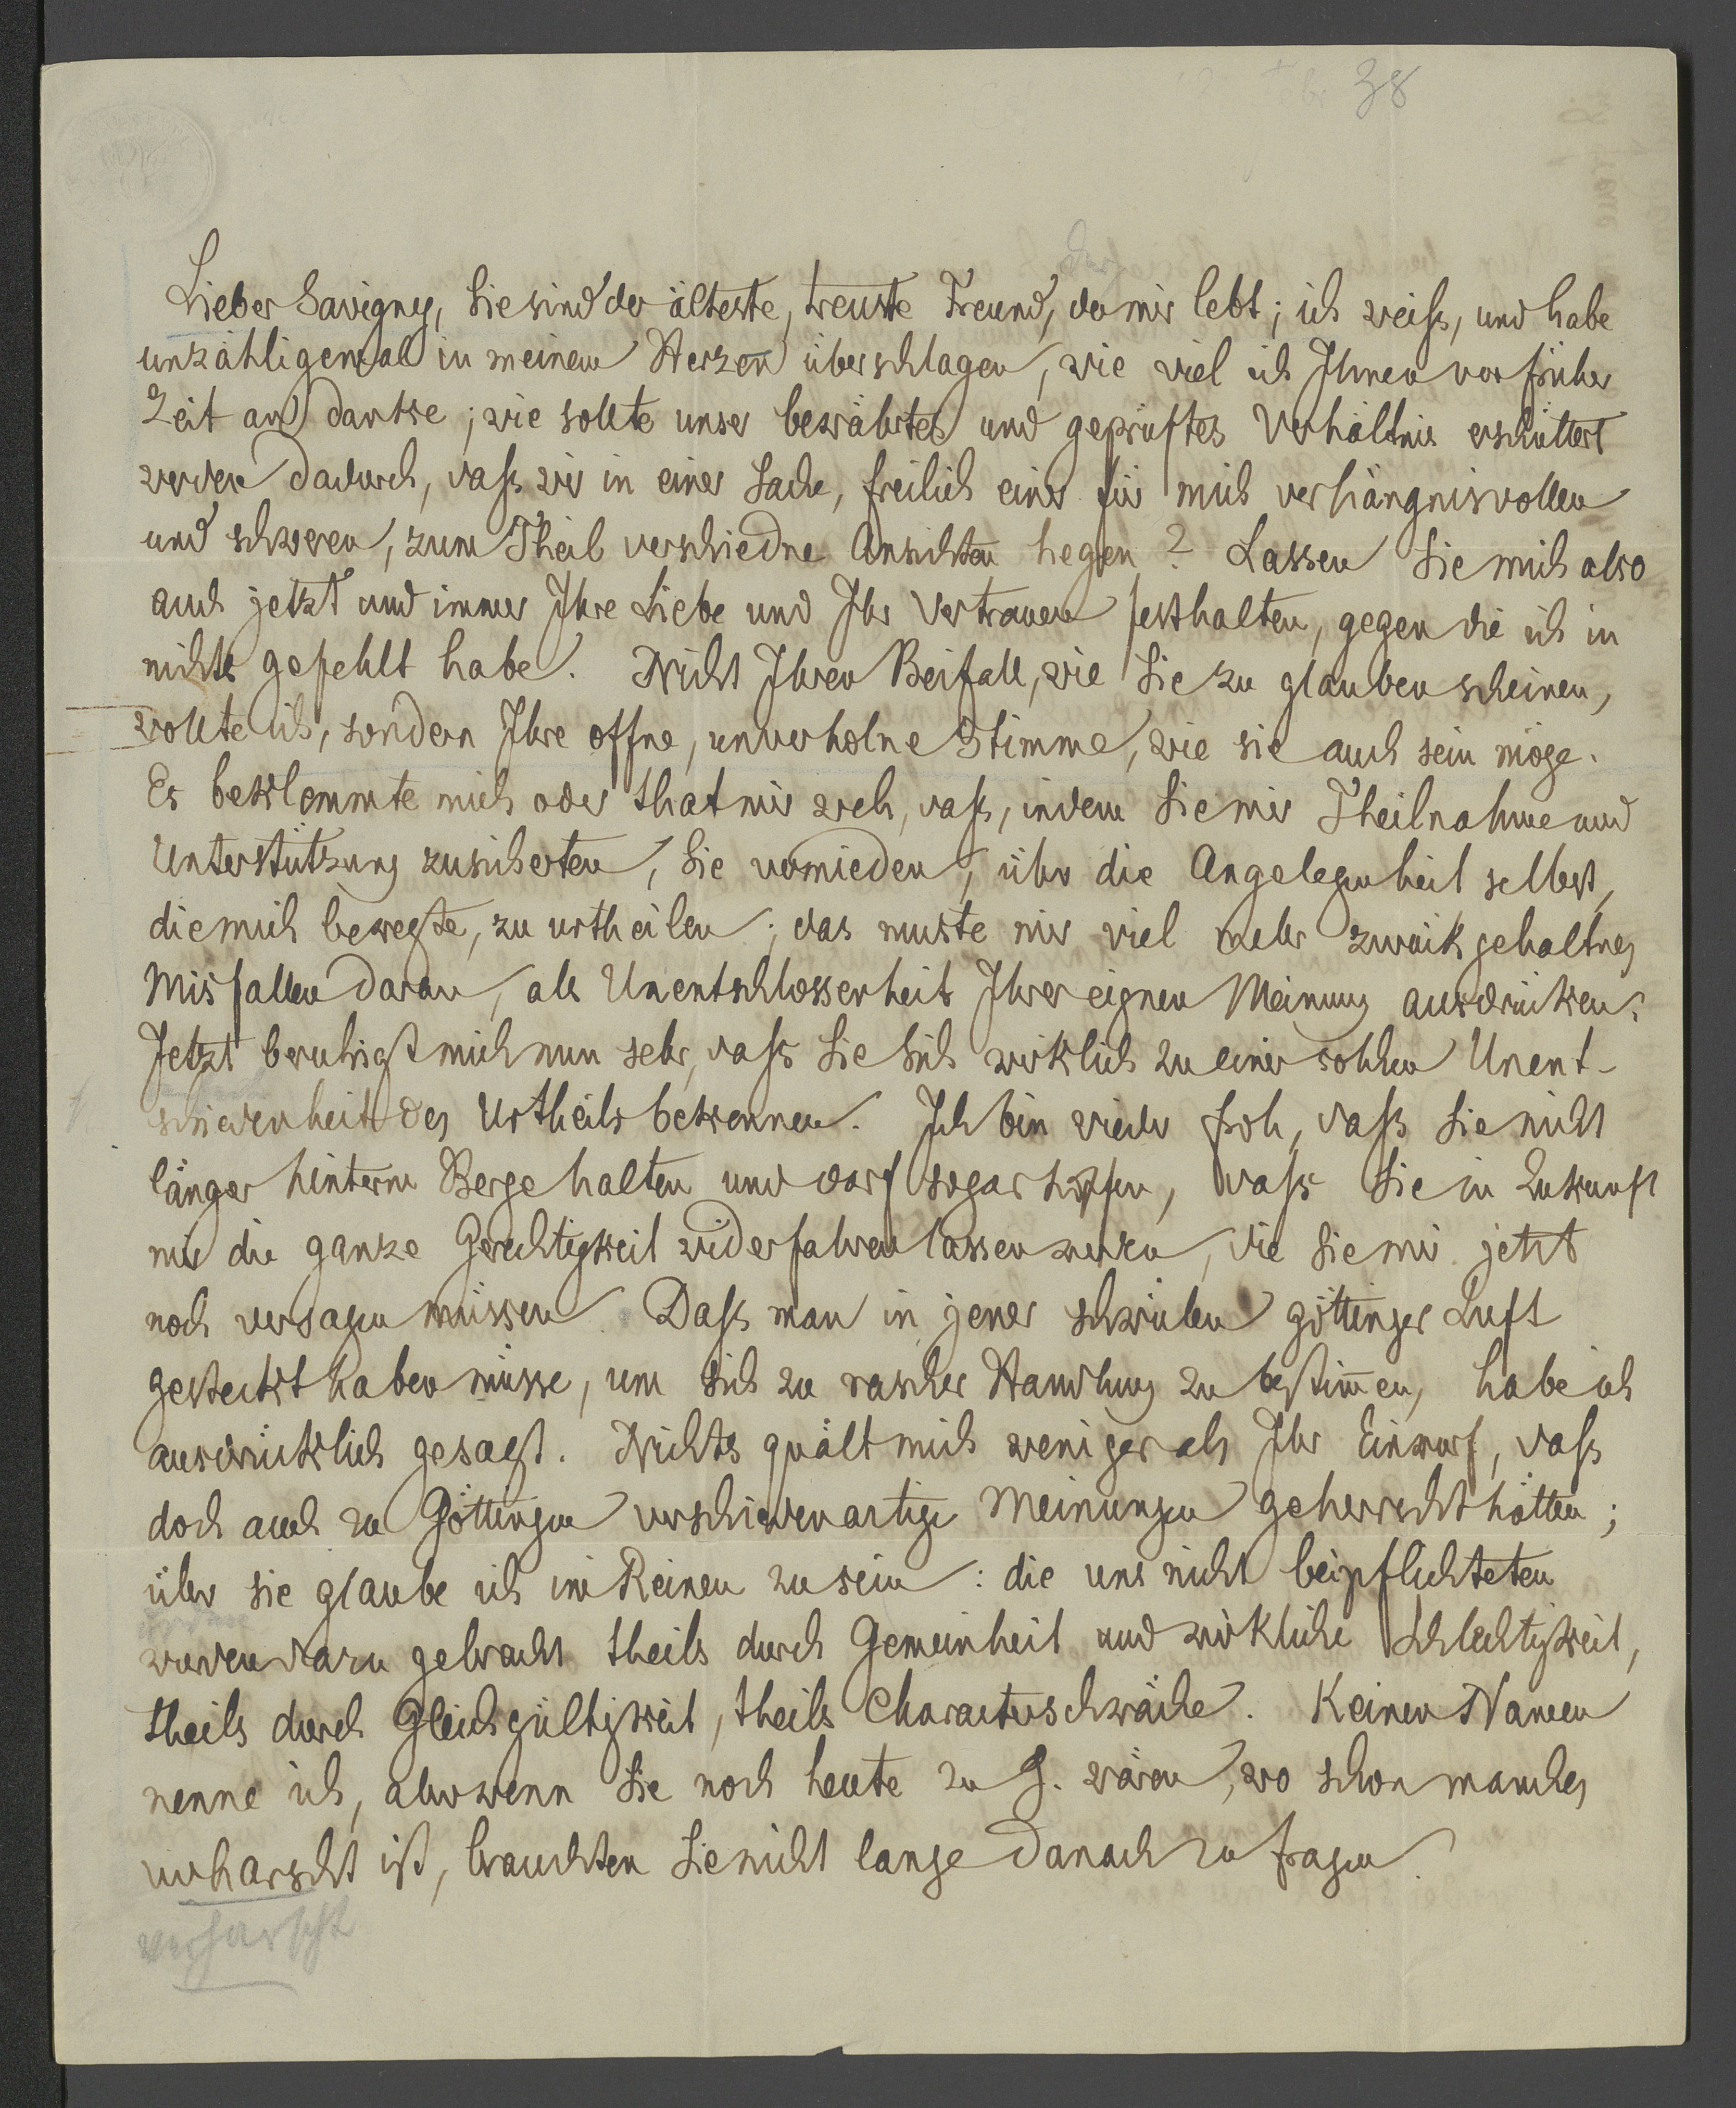 38
der
Lieber Savigny, Sie sind der älteste, treuste Freund, der mir lebt; ich weiß, und habe
unzähligemal in meinem Herzen überschlagen, wie viel ich Ihnen von früher
Zeit an danke; wie sollte unser bewährtes und geprüftes Verhältnis erschüttert
werden dadurch, daß wir in einer Sache, freilich einer für mich verhängnisvollen
und schweren, zum Theil verschiedne Ansichten hegen? Lassen Sie mich also
auch jetzt und immer Ihre Liebe und Ihr Vertrauen festhalten, gegen die ich in
nichts gefehlt habe. Nicht Ihren Beifall, wie Sie zu glauben scheinen,
wollte ich, sondern Ihre offne, unverholne Stimme, wie sie auch sein möge.
Es beklemmte mich oder that mir weh, daß, indem Sie mir Theilnahme und
Unterstützung zusicherten, Sie vermieden, über die Angelegenheit selbst,
die mich bewegte, zu urtheilen; das muste mir viel mehr zurückgehaltnes
Misfallen daran, als Unentschlossenheit Ihrer eignen Meinung ausdrücken.
Jetzt beruhigt mich nun sehr, daß Sie Sich wirklich zu einer solchen Unent-
schiedenheit des Urtheils bekennen. Ich bin wieder froh, daß Sie nicht
länger hinterm Berge halten und darf sogar hoffen, daß Sie in Zukunft
mir die ganze Gerechtigkeit widerfahren lassen werden, die Sie mir jetzt
noch versagen müssen. Daß man in jener schwülen göttinger Luft
gesteckt haben müsse, um sich zu rascher Handlung zu bestim̄en, habe ich
ausdrücklich gesagt. Nichts quält mich weniger als Ihr Einwurf, daß
doch auch zu Göttingen verschiedenartige Meinungen geherrscht hätten;
über sie glaube ich im Reinen zu sein: die uns nicht beipflichteten
wurden dazu gebracht theils durch Gemeinheit und wirkliche Schlechtigkeit,
theils durch Gleichgültigkeit, theils Characterschwäche. Keinen Namen
nenne ich, aber wenn Sie noch heute zu G. wären, wo schon manches
verharscht ist, brauchten Sie nicht lange danach zu fragen.
verharscht